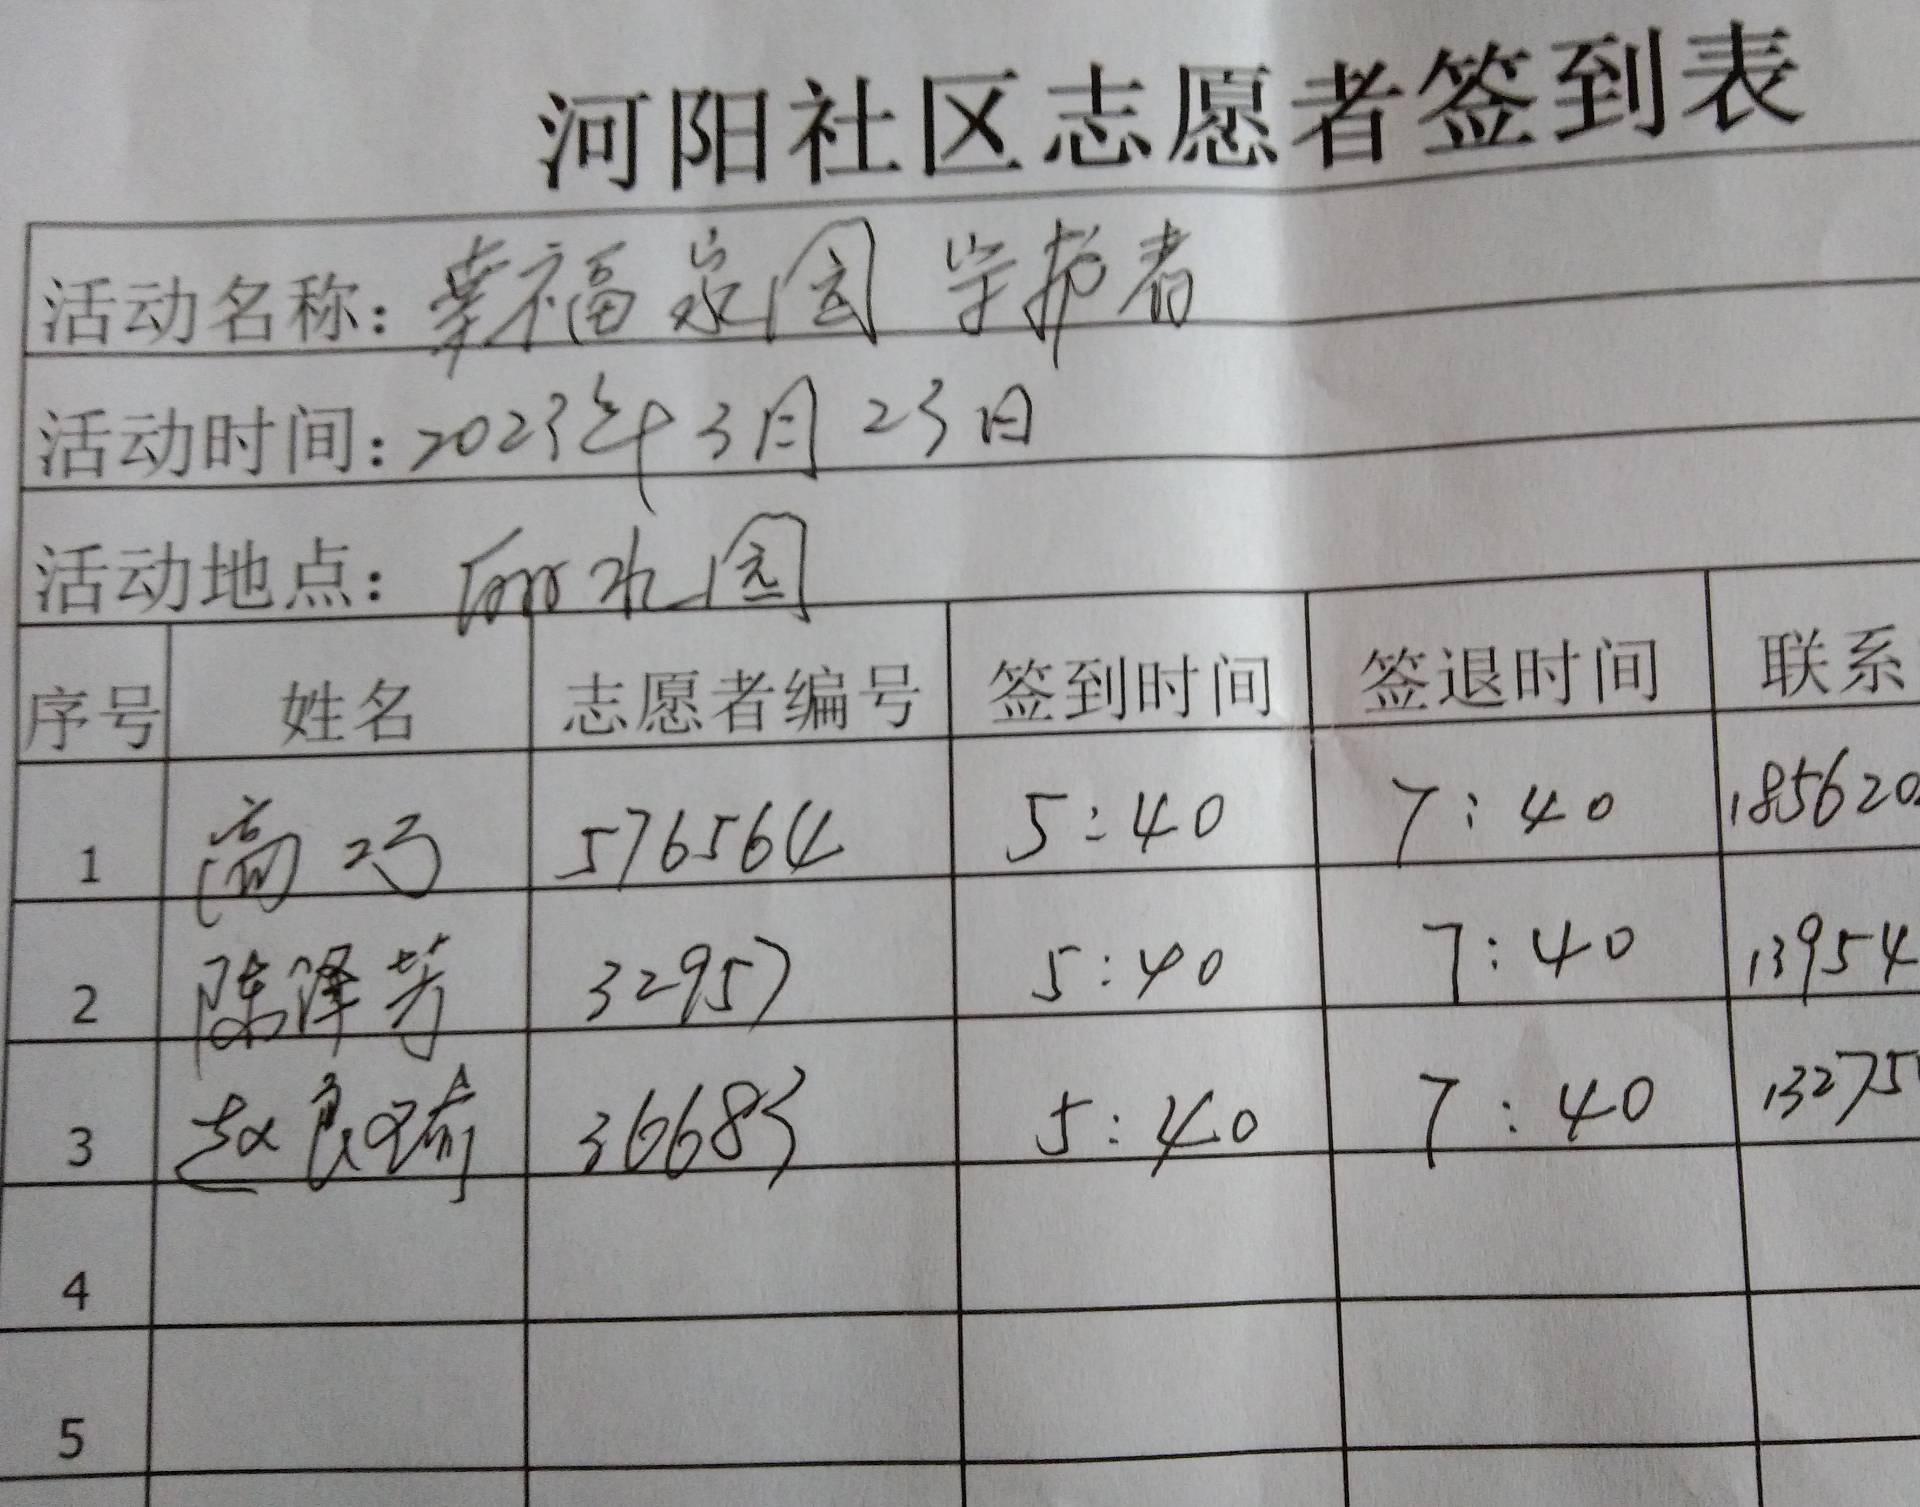 河阳社区志愿者签到表
活动名称：幸福家园守护者
活动时间：2023年3月23日
活动地点：丽水园
序号 姓名 志愿者编号 签到时间 签退时间 联系
1 高巧 576564 5:40 7:40 185620
2 陈泽芳 32957 5:40 7:40 13954
3 赵良瑜 36683 5:40 7:40 13275
4
5